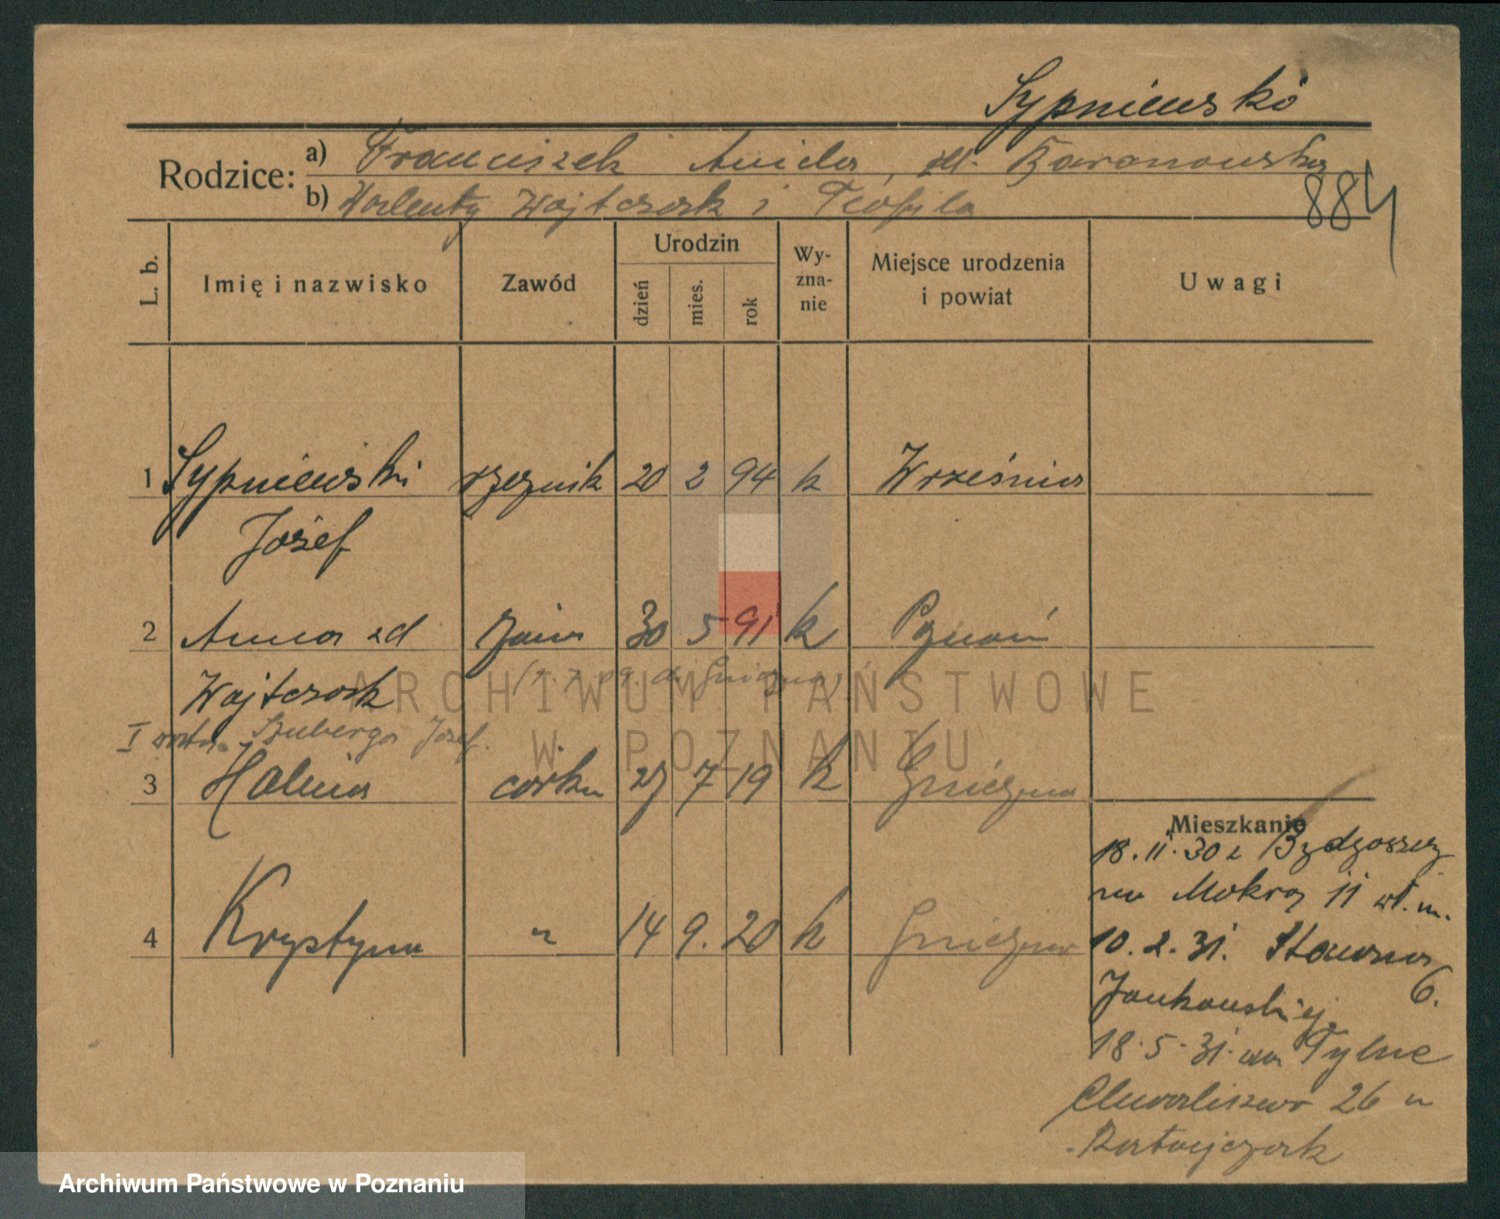 Sypniewski
Rodzice: a) Franciszek Aniela, zd. Baranowska
b) Walenty Wojtczak i Teofila
884
L. b. Imię i nazwisko Zawód Urodzin dzień mies. rok Wy-zna-nie Miejsce urodzenia i powiat Uwagi
1 Sypniewski rzeźnik 20 2 94 k Września
Józef
2 Anna zd żona 30 5 91 k Poznań
Wojtczak
I voto Józef.
3 Halina córka 27 7 19 k Gniezno
Mieszkanie
18.11.30 z Bydgoszczy
na Mokrą 11 wł. m.
4 Krystyna " 14 9. 20 k Gniezno
10.2.31. Stawna 6.
Jankowskiej
18.5.31. na Tylne
Chwaliszewo 26 u
Ratajczak
ARCHIWUM PAŃSTWOWE
W POZNANIU
Archiwum Państwowe w Poznaniu